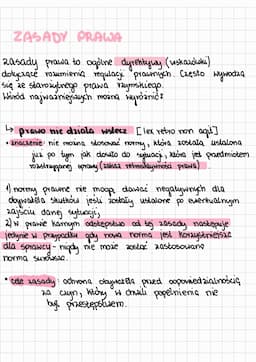 ZASADY PRAWA
zasady prawa to ogólne dyrektywy (wskazówki)
dotyczące rozumienia regulacji prawnych. Często wywodzą
się ze starożytnego prawa rzymskiego.
Wśród najważniejszych można wyróżnić:
↳ prawo nie działa wstecz [lex retro non agit]
• znaczenie: nie można stosować normy, która została ustalona
już po tym jak doszło do sytuacji, która jest przedmiotem
rozstrzyganej sprawy (zakaz retroaktywności prawa)
1) normy prawne nie mogą dawać negatywnych dla
obywatela skutków jeśli zostały ustalone po ewentualnym
zajściu danej sytuacji,
2) w prawie karnym odstępstwo od tej zasady następuje
jedynie w przypadku gdy nowa norma jest korzystniejsza
dla sprawcy - nigdy nie może zostać zastosowana
norma surowsza.
• cele zasady: ochrona obywatela przed odpowiedzialnością
za czyn, który w chwili popełnienia nie
był przestępstwem.